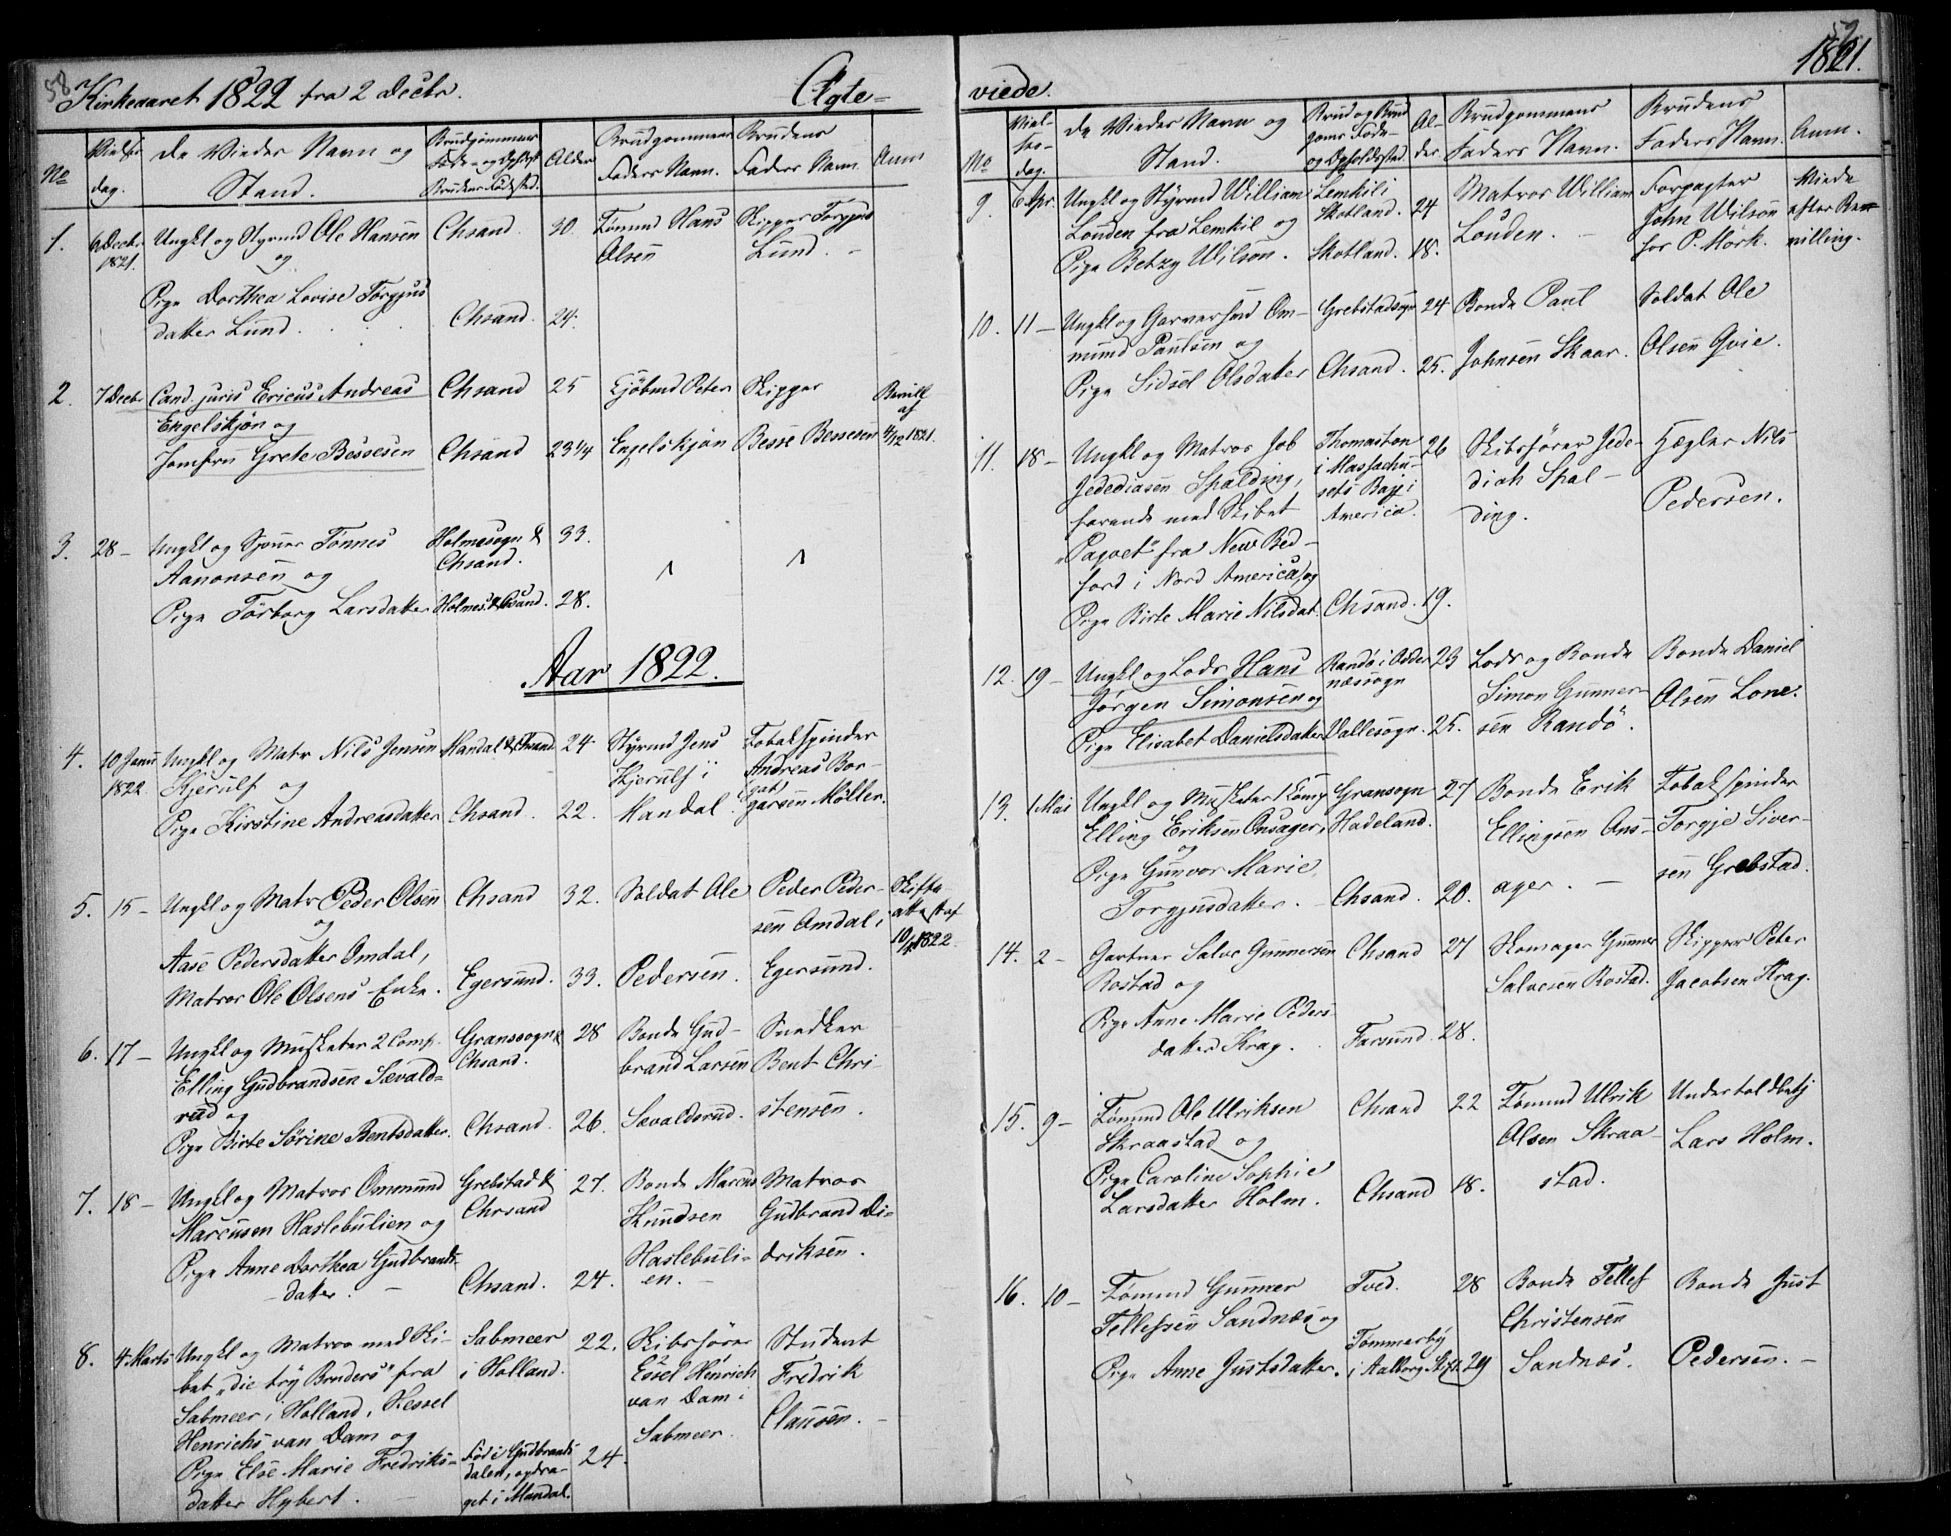 58
Kirkeaaret 1822 fra 2 Decbr.
Ægte-
No
Vielses
dag.
De Viedes Navn og
Stand.
Brudgommens
Føde- og Opholdst
Brudens Fødested.
Alder
Brudgommens
Faders Navn.
Brudens
Faders Navn.
Anm
1.
6 Decbr
1821.
Ungkl og Styrmd Ole Hansen
og
Pige Dorthea Lovise Torgjus
datter Lund.
Chsand.
Chsand.
30.
24.
Tømmd Hans
Olsen
Skipper Torgjus
Lund. -
2.
7 Decbr
Cand. juris Ericus Andreas
Engelskjøn og
Jomfru Grete Bessesen
Chsand
Chsand
25
23 1/4
Kjøbmd Peter
Engelskjøn
Skipper
Besse Bessesen
Bevill
af
4/12 1821.
3.
28 -
Ungkl og Sjouer Tønnes
Aanonsen og
Pige Tørborg Larsdatter
Holmesogn &
Chsand.
Holmes. & Chsand.
33.
28.
Aar 1822.
4.
10 Janu
1822
Ungkl og Matr Nils Jensen
Kjerulf og
Pige Kirstine Andreasdatter
Mandal & Chsand
Chsand.
24.
22.
Styrmd Jens
Kjerulf i
Mandal.
Tobakspinder
Andreas Bor-
garsen Møller.
5.
15 -
Ungkl og Matr Peder Olsen
og
Aase Pedersdatter Omdal,
Matros Ole Olsens Enke.
Chsand
Egersund.
32.
33.
Soldat Ole
Pedersen.
Peder Peder-
sen Omdal i
Egersund.
Skifte
attest af
1822.
6.
17 -
Ungkl og Musketer 2 Comp.
Elling Gudbrandsen Sævald-
rud og
Pige Birte Sørine Bentsdatter.
Gransogn &
Chsand.
Chsand.
28
26.
Bonde Gud-
brand Larsen
Sævaldsrud.
Snedker
Bent Chri-
stensen.
7.
18 -
Ungkl og Matros Ommund
Marcusen Haslebulien og
Pige Anne Dorthea Gudbrands-
datter. -
Grebstad &
Chrsand
Chsand.
27.
24.
Bonde Marcus
Knudsen
Haslebuli-
en. -
Matros
Gudbrand Di-
driksen.
8.
4. Marts
Ungkl og Matros med Ski-
bet "die try Bruders" fra
Sabmeer i Holland, Hessel
Henrichs van Dam og
Pige Else Marie Fredriks-
datter Hybert. -
Sabmeer
i Holland.
Fød i Gudbrands
dalen, opdra-
get i Mandal.
22.
24.
Skibsfører
Essel Henrich
van Dam i
Sabmeer.
Student
Fredrik
Clausen. -
viede.
1821.
No
Viel-
ses-
dag.
De Viedes Navn og
Stand.
Brud og Brud
goms Føde-
og Opholdssted
Al-
der
Brudgommens
Faders Navn.
Brudens
Faders Navn.
Anm.
9.
6 Apr.
Ungkl og Styrmd William
Louden fra Lemkil og
Pige Betzy Wilson.
Lemkil i
Skotland.
Skotland.
24
18.
Matros William
Louden. -
Forpagter
John Wilson
for P. Mørk.
Viede
efter Be-
villing.
10.
11 -
Ungkl og Garversvd Om-
mund Paulsen og
Pige Sidsel Olsdatter
Grebstadsogn
Chsand.
24
25.
Bonde Paul
Johnsen Skaar.
Soldat Ole
Olsen Gvie.
11.
18 -
Ungkl og Matros Job
Jedediasen Spalding,
farende med Skibet
"Paqvet" fra New Bed-
ford i Nord America, og
Pige Birte Marie Nilsdat.
Thomaston
i Massachu-
sets Baji
America.
Chsand.
26
19.
Skibsfører Jede-
diah Spal-
ding.
Hægler Nils
Pedersen.
12.
19 -
Ungkl og Lods Hans
Jørgen Simonsen og
Pige Elisabet Danielsdatter
Randø i Odder
næssogn
Vallesogn.
23
25.
Lods og Bonde
Simon Gunner-
sen Randø.
Bonde Daniel
Olsen Lone.
13.
1 Mai
Ungkl og Musketer 1 Comp
Elling Eriksen Onsager,
og
Pige Gunvor Marie
Torgjusdatter. -
Gransogn
Hadeland.
Chsand.
27
20.
Bonde Erik
Ellingsen Ons-
ager. -
Tobakspinder
Torgje Siver-
sen Grebstad.
14.
2 -
Gartner Salve Gunnersen
Rostad og
Pige Anne Marie Peders-
datter Krag.
Chsand
Farsund.
27
28.
Skomager Gunner
Salvesen Rostad.
Skipper Peter
Jacobsen Krag.
15.
9 -
Tømmd Ole Ulriksen
Skraastad og
Pige Caroline Sophie
Larsdatter Holm.
Chsand
Chsand
22
18.
Tømmd Ulrik
Olsen Skraa-
stad.
Undertoldbetj
Lars Holm.
16.
10 -
Tømmd Gunner
Tellefsen Sandnæs og
Pige Anne Justsdatter.
Tved.
Tømmerby
i Aalborg Stift
28
29
Bonde Tellef
Christensen
Sandnæs.
Bonde Just
Pedersen. -